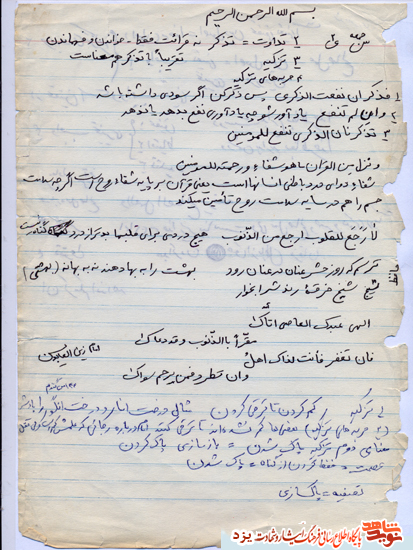 بسم الله الرحمن الرحیم
۲ تلاوت = تذکر نه قرائت فقط = خواندن و فهماندن
۳ تزکیه تقریباً با تذکر هم معناست
۴ حربه‌های تزکیه
۱ فذکر ان نفعت الذکری پس تذکر کن اگر سودی داشته باشد
۲ و ان لم تنفع یادآور شو چه یادآوری نفع بدهد یا ندهد
۳ تذکر فان الذکری تنفع المومنین
و ننزل من القرآن ما هو شفاء و رحمة للمومنین
شفاء و دوای درد باطنی انسانهاست یعنی قرآن بر پایه شفاء روح است اگرچه سلامت
جسم را هم در سایه سلامت روح تأمین میکند
لا وجع للقلوب اوجع من الذنوب هیچ دردی برای قلبها بدتر از درد گناه نیست
ترسم که روز حشر عنان در عنان رود بهشت را به بها دهند نه به بهانه (بهشتی)
شیخ و خرقه رند شرابخوار
حافظ
الهی عبدک العاصی اتاک
مقراً بالذنوب و قد دعاک
امام زین العابدین
فان تغفر فانت لذاک اهل
و ان تطرد فمن یرحم سواک
۱ تزکیه کم کردن تا ترقی کردن مثال درخت انار و درخت انگور
معنای دوم تزکیه پاک شدن = بازسازی پاک کردن
عصمت = حفظ کردن از گناه = پاک شدن
تصفیه = پاکسازی
نوید شاهد
پایگاه اطلاع رسانی فرهنگ ایثار و شهادت یزد